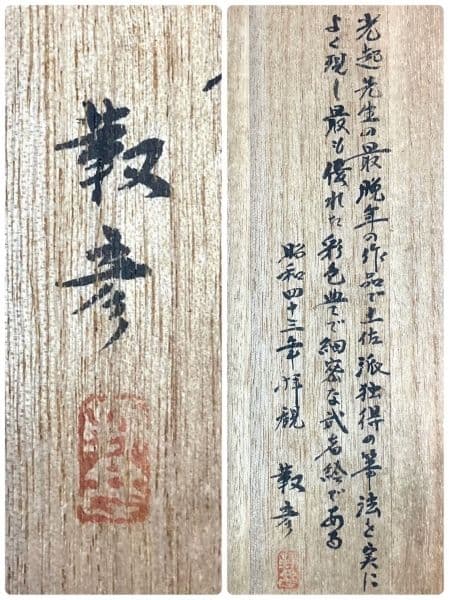 靫彦
光起先生の最晩年の作品で土佐派独得の筆法を実に
よく現し最も優れた彩色典で細密な武者絵である
昭和四十三年拝観 靫彦